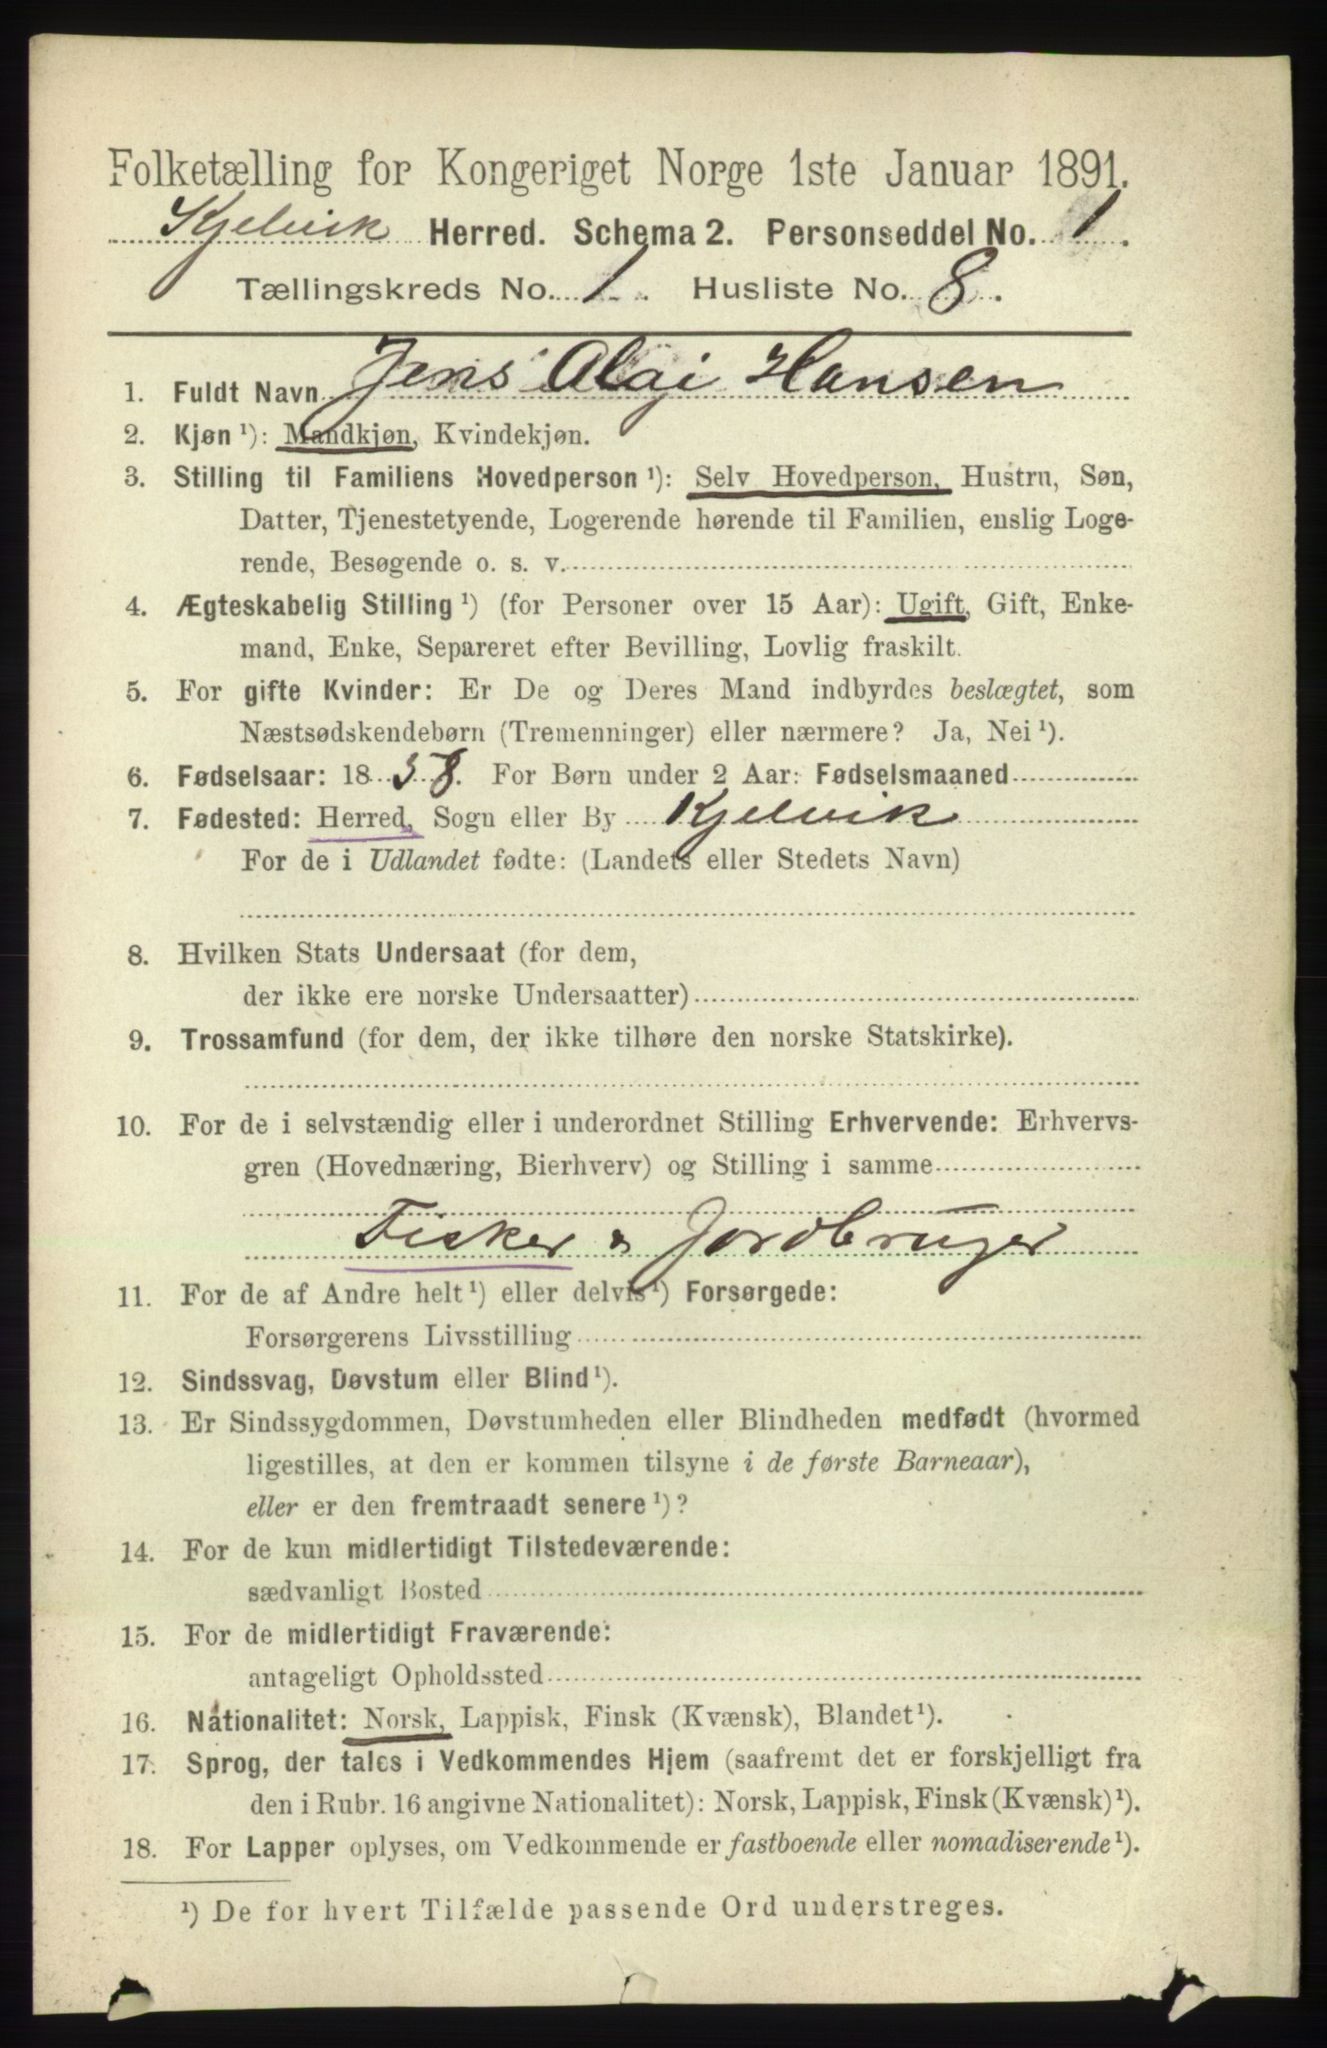 Folketælling for Kongeriget Norge 1ste Januar 1891.
Kjelvik Herred. Schema 2. Personseddel No. 1.
Tællingskreds No. 1. Husliste No. 8.
1. Fuldt Navn Jens Olaj Hansen
2. Kjøn ¹): Mandkjøn, Kvindekjøn.
3. Stilling til Familiens Hovedperson ¹): Selv Hovedperson, Hustru, Søn,
Datter, Tjenestetyende, Logerende hørende til Familien, enslig Loge-
rende, Besøgende o. s. v.
4. Ægteskabelig Stilling ¹) (for Personer over 15 Aar): Ugift, Gift, Enke-
mand, Enke, Separeret efter Bevilling, Lovlig fraskilt.
5. For gifte Kvinder: Er De og Deres Mand indbyrdes beslægtet, som
Næstsødskendebørn (Tremenninger) eller nærmere? Ja, Nei ¹).
6. Fødselsaar: 1858. For Børn under 2 Aar: Fødselsmaaned
7. Fødested: Herred, Sogn eller By Kjelvik
For de i Udlandet fødte: (Landets eller Stedets Navn)
8. Hvilken Stats Undersaat (for dem,
der ikke ere norske Undersaatter)
9. Trossamfund (for dem, der ikke tilhøre den norske Statskirke).
10. For de i selvstændig eller i underordnet Stilling Erhvervende: Erhvervs-
gren (Hovednæring, Bierhverv) og Stilling i samme
Fisker & Jordbruger
11. For de af Andre helt ¹) eller delvis ¹) Forsørgede:
Forsørgerens Livsstilling
12. Sindssvag, Døvstum eller Blind ¹).
13. Er Sindssygdommen, Døvstumheden eller Blindheden medfødt (hvormed
ligestilles, at den er kommen tilsyne i de første Barneaar),
eller er den fremtraadt senere ¹)?
14. For de kun midlertidigt Tilstedeværende:
sædvanligt Bosted
15. For de midlertidigt Fraværende:
antageligt Opholdssted
16. Nationalitet: Norsk, Lappisk, Finsk (Kvænsk), Blandet ¹).
17. Sprog, der tales i Vedkommendes Hjem (saafremt det er forskjelligt fra
den i Rubr. 16 angivne Nationalitet): Norsk, Lappisk, Finsk (Kvænsk) ¹).
18. For Lapper oplyses, om Vedkommende er fastboende eller nomadiserende ¹).
¹) De for hvert Tilfælde passende Ord understreges.